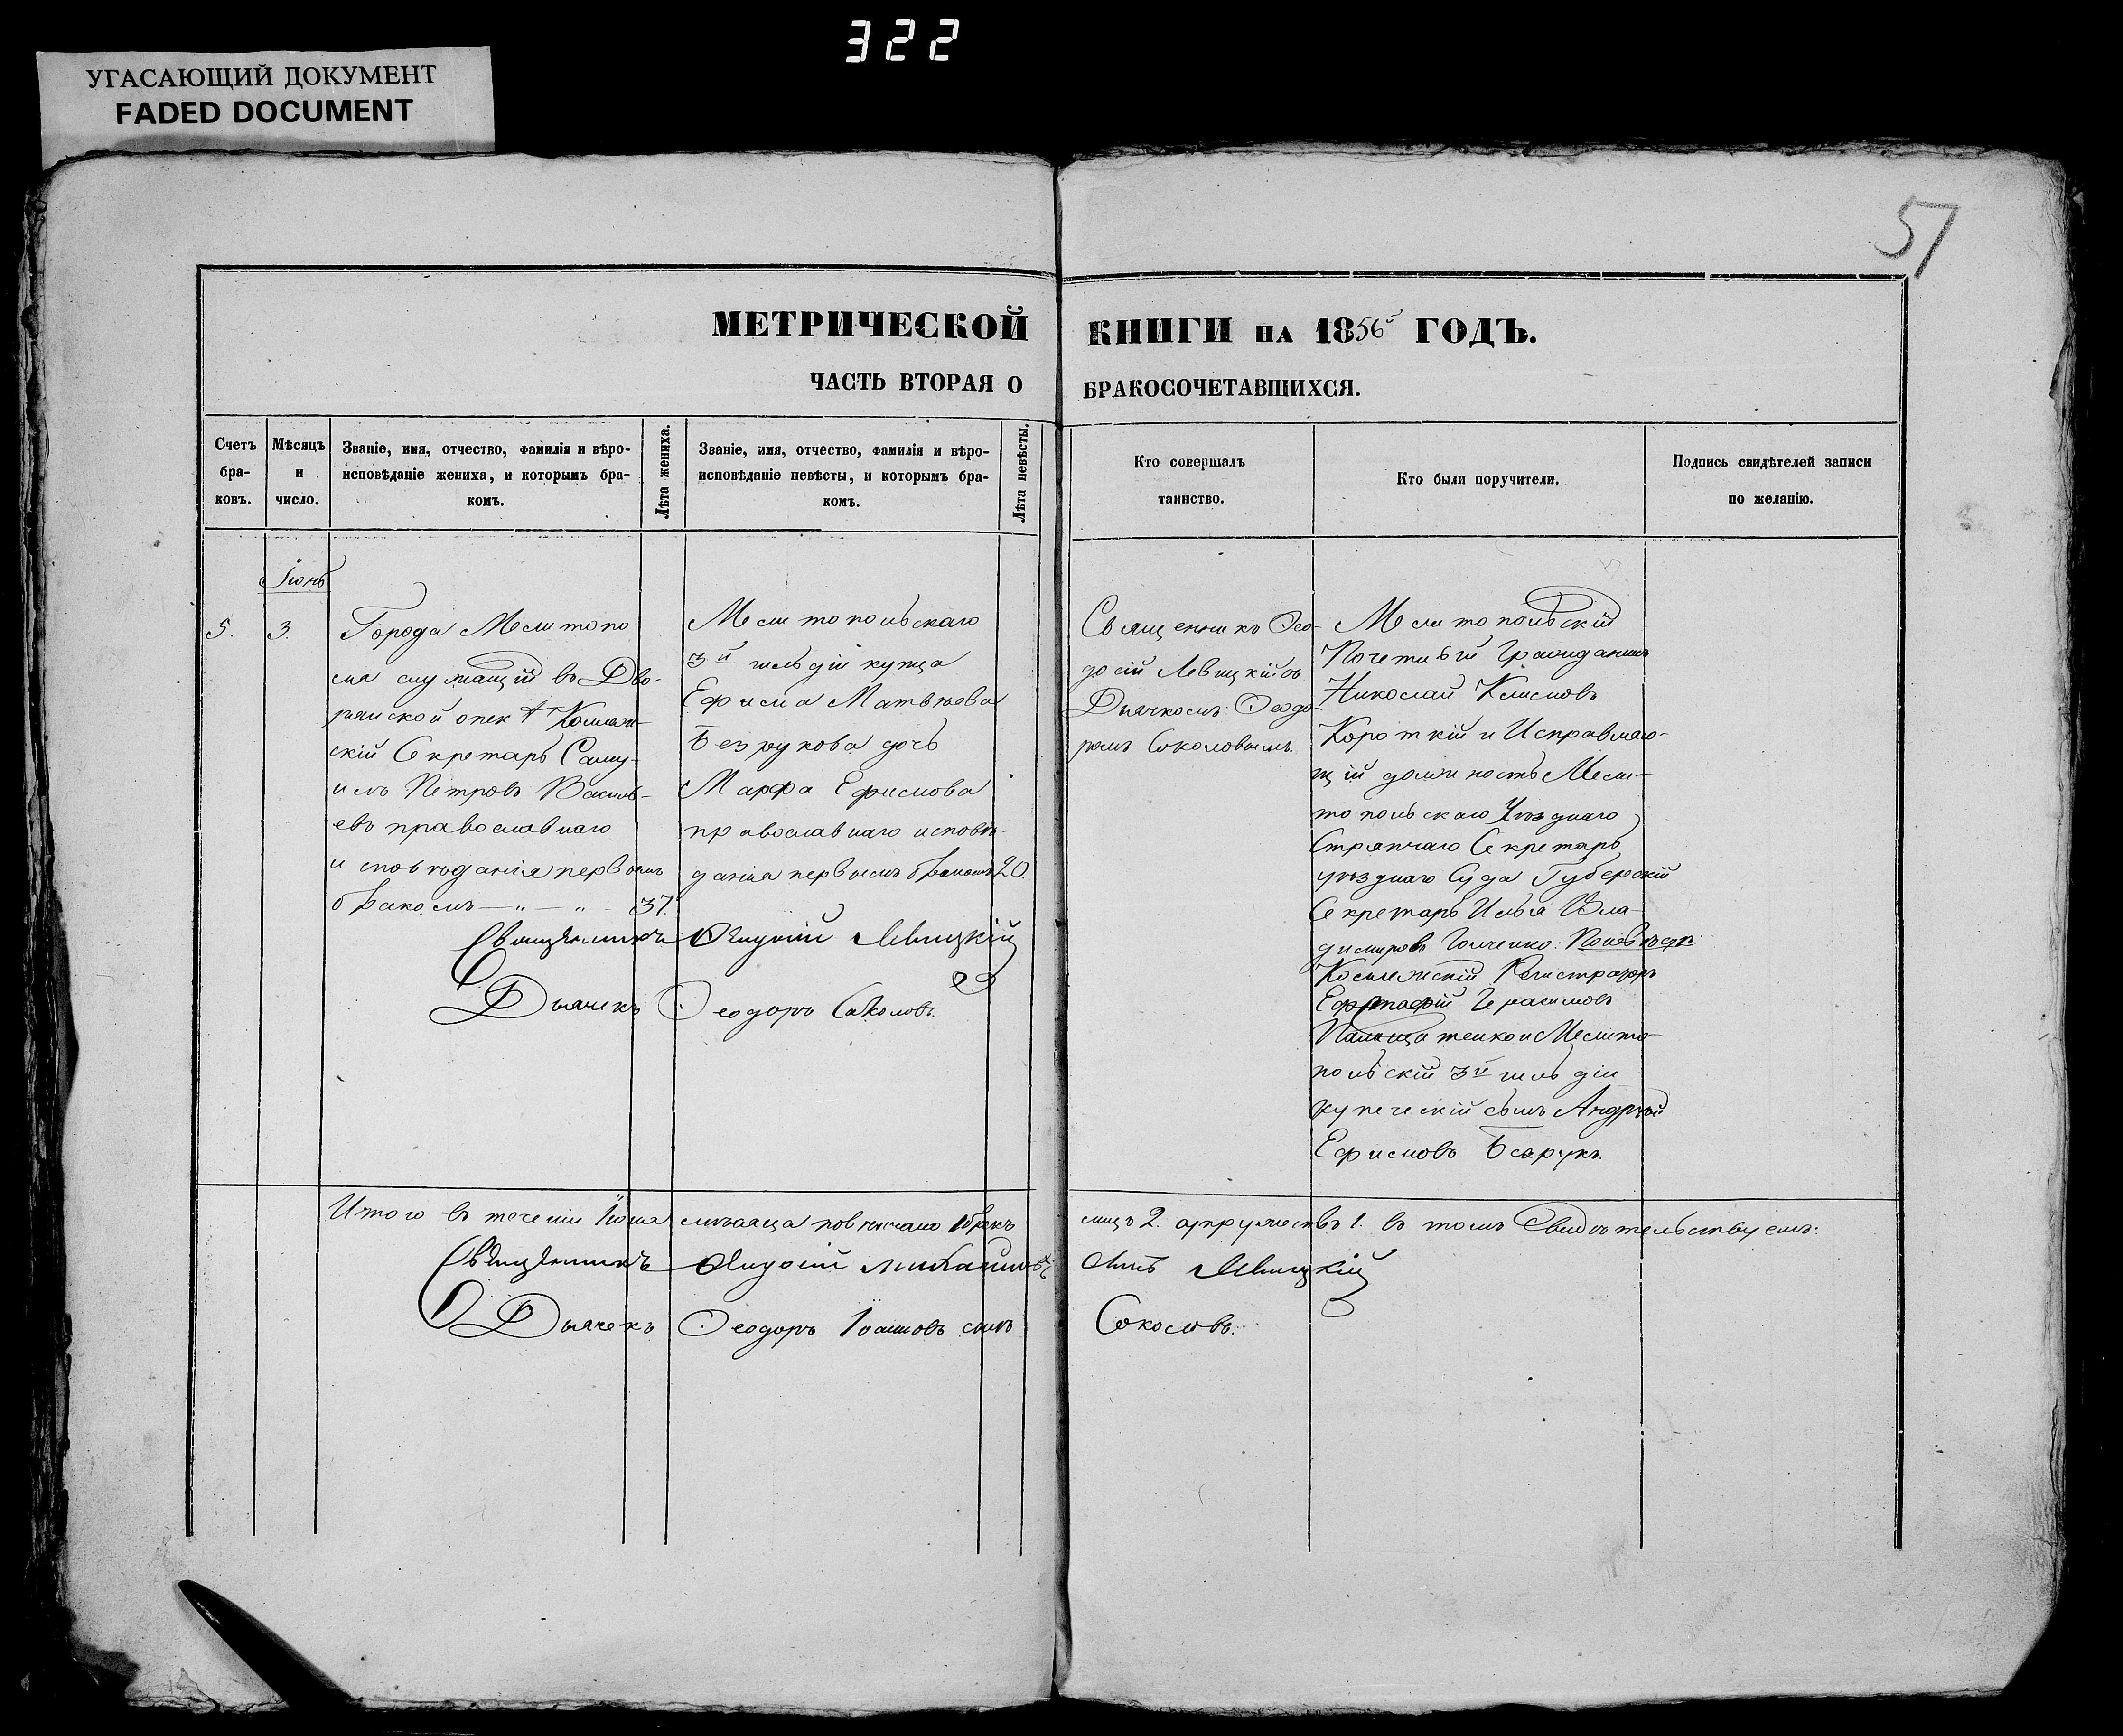 322
УГАСАЮЩИЙ ДОКУМЕНТ
FADED DOCUMENT
51
МЕТРИЧЕСКОЙ КНИГИ НА 1856 ГОДЪ.
ЧАСТЬ ВТОРАЯ О БРАКОСОЧЕТАВШИХСЯ.
Счетъ
бра-
ковъ.
Мѣсяцъ
и
число.
Званіе, имя, отчество, фамилія и вѣро-
исповѣданіе жениха, и которымъ бра-
комъ.
Лѣта жениха.
Званіе, имя, отчество, фамилія и вѣро-
исповѣданіе невѣсты, и которымъ бра-
комъ.
Лѣта невѣсты.
Кто совершалъ
таинство.
Кто были поручители.
Подпись свидѣтелей записи
по желанію.
Іюнь
5.
3.
Города Мелитопо
ля служащій въ Дво-
рянской опекѣ
скій Секретарь Саму-
илъ Петровъ Василь-
евъ православнаго
исповѣданія первымъ
бракомъ — „ — „
37.
Мелитопольскаго
3й гильдіи купца
Ефима Матвѣева
Безрукова дочь
Марфа Ефимова
православнаго исповѣ-
данія первымъ бракомъ
20.
Священникъ Ѳео-
досій Левицкій съ
Дьячкомъ Ѳеодо-
ромъ Соколовымъ.
Мелитопольскій
Почетный Гражданинъ
Николай Климовъ
Короткій и Исправляю-
щій должность Мели-
топольскаго Уѣзднаго
Стряпчаго Секретарь
уѣзднаго Суда Губернскій
Секретарь Илья Вла-
димировъ
Коллежскій Регистраторъ
Герасимовъ
Мелито-
польскій 3й гильдіи
купеческій сынъ Андрей
Ефимовъ
Священникъ Ѳеодосій Левицкій
Дьячекъ Ѳеодоръ Соколовъ.
Итого въ теченіи Іюня мѣсяца повѣнчано 1 бракъ лицъ 2. супружествъ 1. въ томъ Свидѣтельствуемъ:
Священникъ Ѳеодосій Левицкій
Дьячекъ Ѳеодоръ Іоанновъ сынъ Соколовъ.